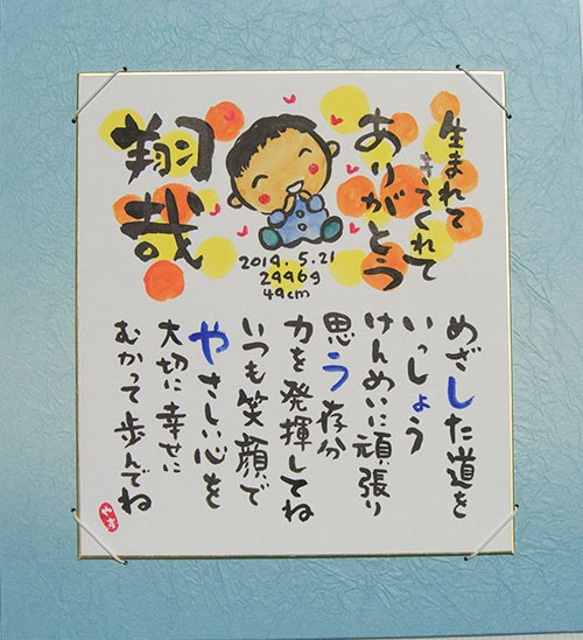 生まれて
きてくれて
ありがとう
翔哉
2014.5.21
2996g
49cm
めざした道を
いっしょう
けんめいに頑張り
思う存分
力を発揮してね
いつも笑顔で
やさしい心を
大切に幸せに
むかって歩んでね
やす